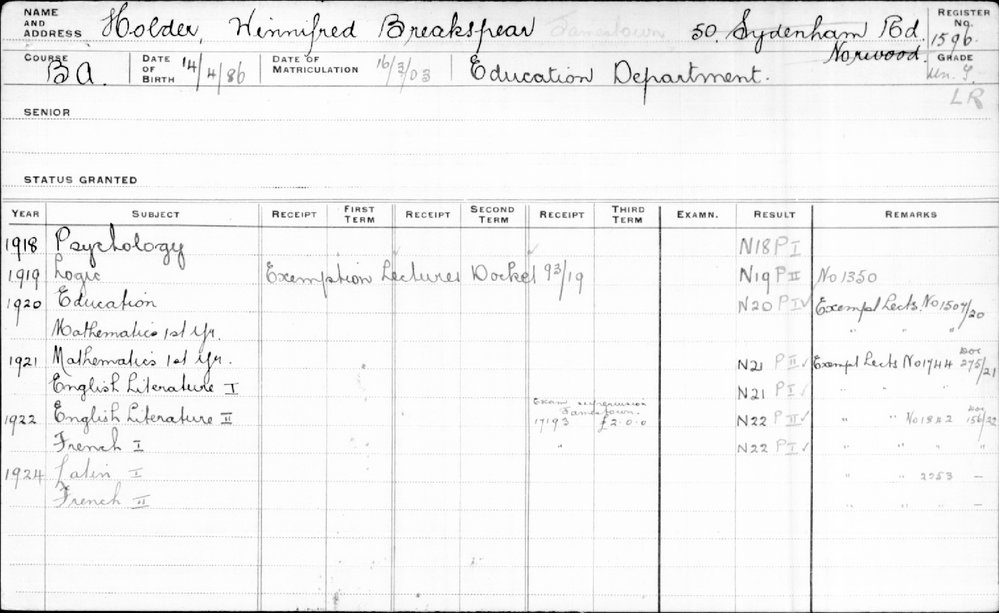 NAME AND ADDRESS Holder, Winnifred Breakspear Jamestown 50. Sydenham Rd. Norwood. REGISTER No. 1596.
COURSE B A. DATE OF BIRTH 14/4/86 DATE OF MATRICULATION 16/3/03 Education Department. GRADE
LR
SENIOR
STATUS GRANTED
YEAR SUBJECT RECEIPT FIRST TERM RECEIPT SECOND TERM RECEIPT THIRD TERM EXAMN. RESULT REMARKS
1918 Psychology N18 P I
1919 Logic Exemption Lectures Docket 93/19 N19 P II No 1350
1920 Education N20 P IV ✓ Exempt Lects. No 1507/20
Mathematics 1st Yr. " " "
1921 Mathematics 1st Yr. N21 P II ✓ Exempt Lects No 1744 Doc 275/21
English Literature I N21 P I ✓ " " "
Exam supervision Jamestown.
1922 English Literature II 17193 £2.0.0 N22 P II ✓ " " No 1842 Doc 156/22
French I " N22 P I ✓ " " " "
1924 Latin I " " 2253 —
French II " " " —